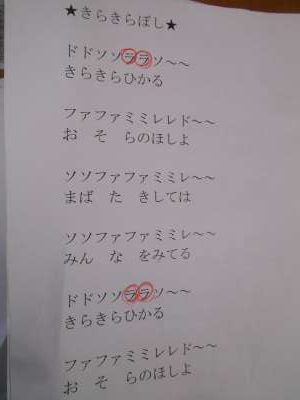 ★きらきらぼし★
ドドソソララソ～～
きらきらひかる
ファファミミレレド～～
お そ らのほしよ
ソソファファミミレ～～
まば た きしては
ソソファファミミレ～～
みん な をみてる
ドドソソララソ～～
きらきらひかる
ファファミミレレド～～
お そ らのほしよ